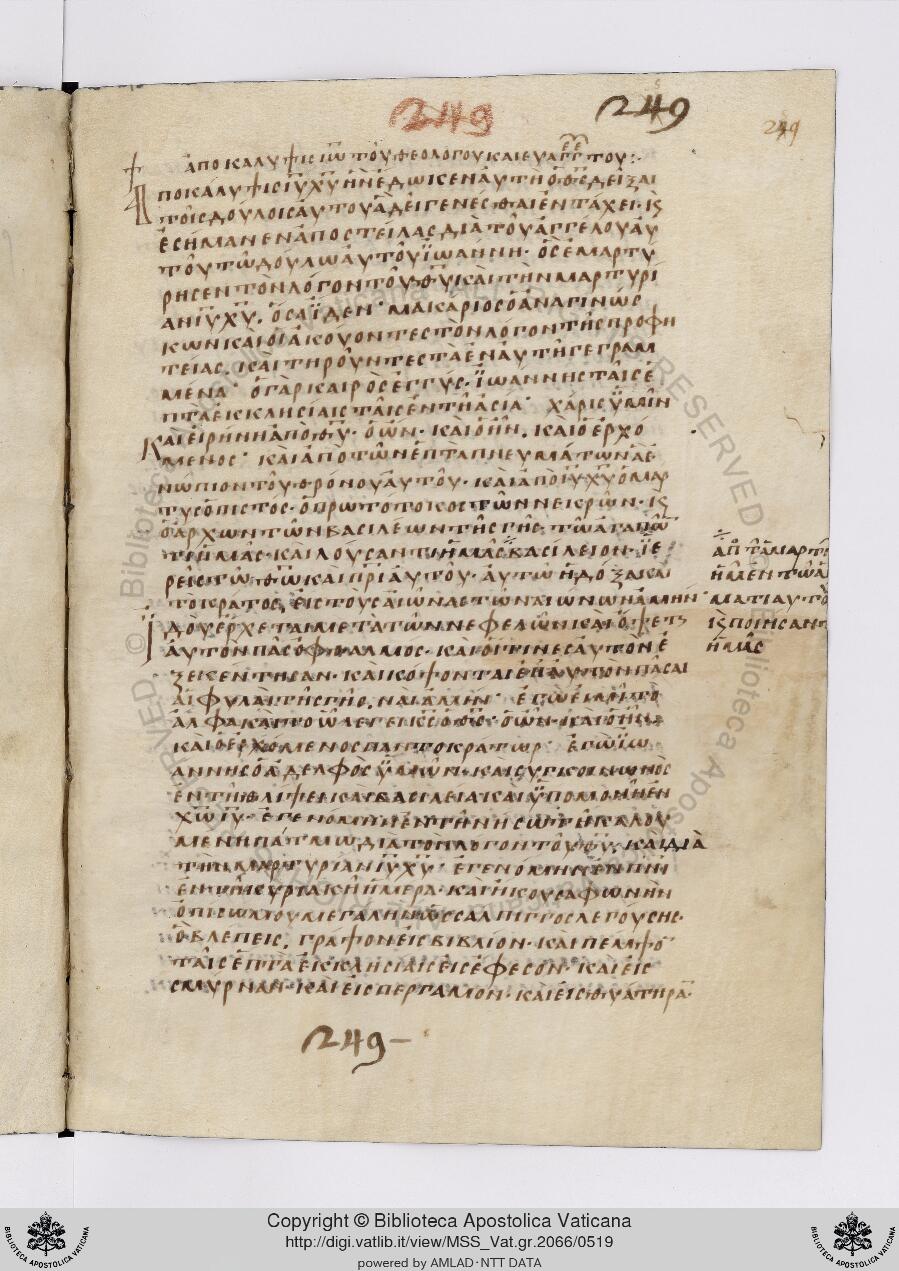 249 249
249
ἀποκαλυψις ϊω̅ του θεολογου και ευαγγ του:·
Αποκάλυψις ι̅υ̅ χ̅υ̅ ἣν ἔδωκεν αὐτῆ ὁ θ̅ς̅ δεῖξαι
τοῖς δούλοις αὐτοῦ ἃ δεῖ γενέσθαι ἐν τάχει· κς
ἐσήμανεν ἀποστείλας διὰ τοῦ ἀγγέλου αὐ
τοῦ τῶ δούλω αὐτοῦ ϊωάννη· ὃς ἐμαρτύ
ρησεν τὸν λόγον τοῦ θ̅υ̅ καὶ τὴν μαρτυρί
αν ι̅υ̅ χ̅υ̅. ὅσα ΐδεν· μακάριος ὁ ἀναγινώς
κων καὶ οἱ ἀκούοντες τὸν λόγον τῆς προφη
τείας. καὶ τηροῦντες τὰ ἐν αὐτῆ γεγραμ
μένα· ὁ γὰρ καιρὸς ἐγγύς· ϊωάννης ταῖς ἑ
πτὰ ἐκκλησίαις ταῖς ἐν τῆ ἀσία· χάρις ὑμῖν
Καὶ εἰρήνη ἀπὸ θ̅υ̅· ὁ ὢν· καὶ ὁ ἦν. καὶ ὁ ἐρχό
μενος· καὶ ἀπὸ τῶν ἑπτὰ πνευμάτων ἃ ἐ
νώπιον τοῦ θρόνου αὐτοῦ· καὶ ἀπὸ ι̅υ̅ χ̅υ̅ ὁ μαρ
τυς ὁ πιστός· ὁ πρωτότοκος τῶν νεκρῶν· κς
ὁ ἄρχων τῶν βασιλέων τῆς γῆς· τῶ ἀγαπῶ̅
τι ἡμᾶς· καὶ λούσαντι ἡμᾶς βασίλειον· ϊε
ρεῖς τῶ θ̅ω̅ καὶ π̅ρ̅ι̅ αὐτοῦ· αὐτῶ ἡ δόξα καὶ
τὸ κράτος εἰς τοὺς αἰῶνας τῶν αἰώνων ἀμήν·
Ϊδοὺ ἔρχεται μετὰ τῶν νεφελῶν καὶ ὄψετς
αὐτὸν πᾶς ὀφθαλμος· καὶ οἵτινες αὐτὸν ἐ
ξεκέντησαν· καὶ κόψονται ἐπ αὐτὸν πᾶσαι
αἱ φυλαὶ τῆς γῆς. ναὶ ἀμήν· ἐγώ εἰμι τὸ
ἄλφα καὶ τὸ ὦ λέγει κ̅ς̅ ὁ θ̅ς̅· ὁ ὢν· καὶ ὁ ἦν
καὶ ὁ ἐρχόμενος παντοκράτωρ· ἐγὼ ϊω
άννης ὁ ἀδελφὸς ὑμῶν· καὶ συγκοινωνὸς
ἐν τῆ θλίψει καὶ βασιλεία καὶ ὑπομονῆ ἐν
χ̅ω̅ ι̅υ̅· ἐγενόμην ἐν τῆ νήσω τῆ καλου
μένη πάτμω διὰ τὸν λόγον τοῦ θ̅υ̅. καὶ διὰ
τὴν μαρτυρίαν ι̅υ̅ χ̅υ̅· ἐγενόμην ἐν π̅ν̅ι̅
ἐν τῆ κυριακῆ ἡμέρα· καὶ ἤκουσα φωνὴν
ὀπίσω μου μεγάλην ὡς σάλπιγγος λεγούσης·
ὃ βλέπεις. γράψον εἰς βιβλίον· καὶ πέμψο̅
ταῖς ἑπτὰ ἐκκλησίαις εἰς ἔφεσον· καὶ εἰς
σμύρναν· καὶ εἰς πέργαμον· καὶ εἰς θυάτηρα·
ἀπ τῶ̅ ἁμαρτι
ἡμῶν τῶ αἵ
ματι αὐτο
κς ποιησαντ
ἡμᾶς
249
Copyright © Biblioteca Apostolica Vaticana
http://digi.vatlib.it/view/MSS_Vat.gr.2066/0519
powered by AMLAD·NTT DATA